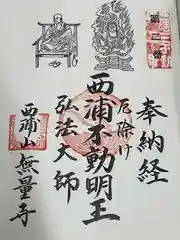 奉納経
厄除け
西浦不動明王
弘法大師
西浦山無量寺